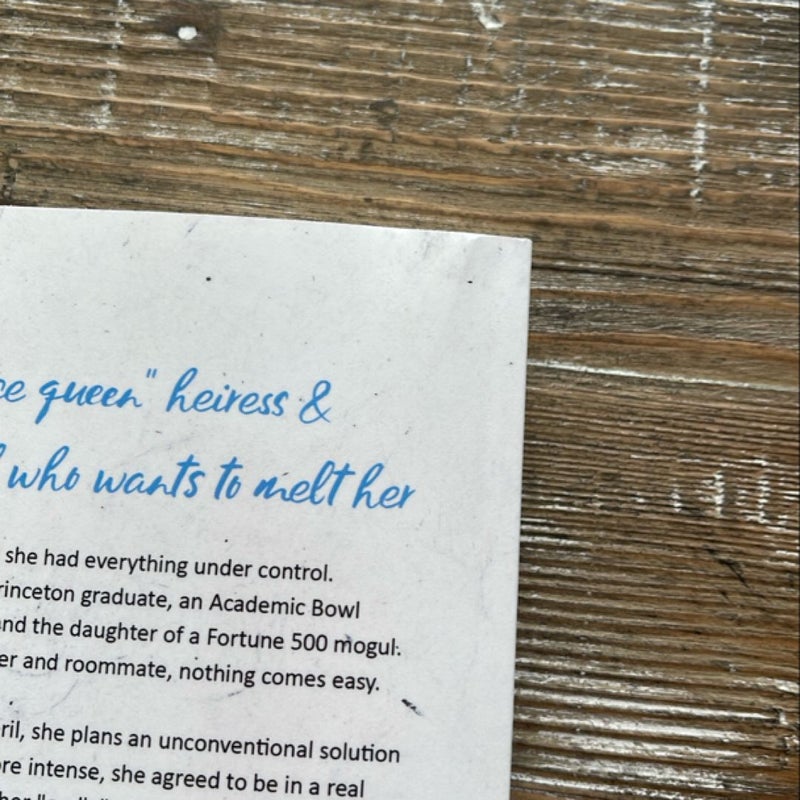 ce queen" heiress &
who wants to melt her
she had everything under control.
rinceton graduate, an Academic Bowl
nd the daughter of a Fortune 500 mogul.
er and roommate, nothing comes easy.
ril, she plans an unconventional solution
re intense, she agreed to be in a real